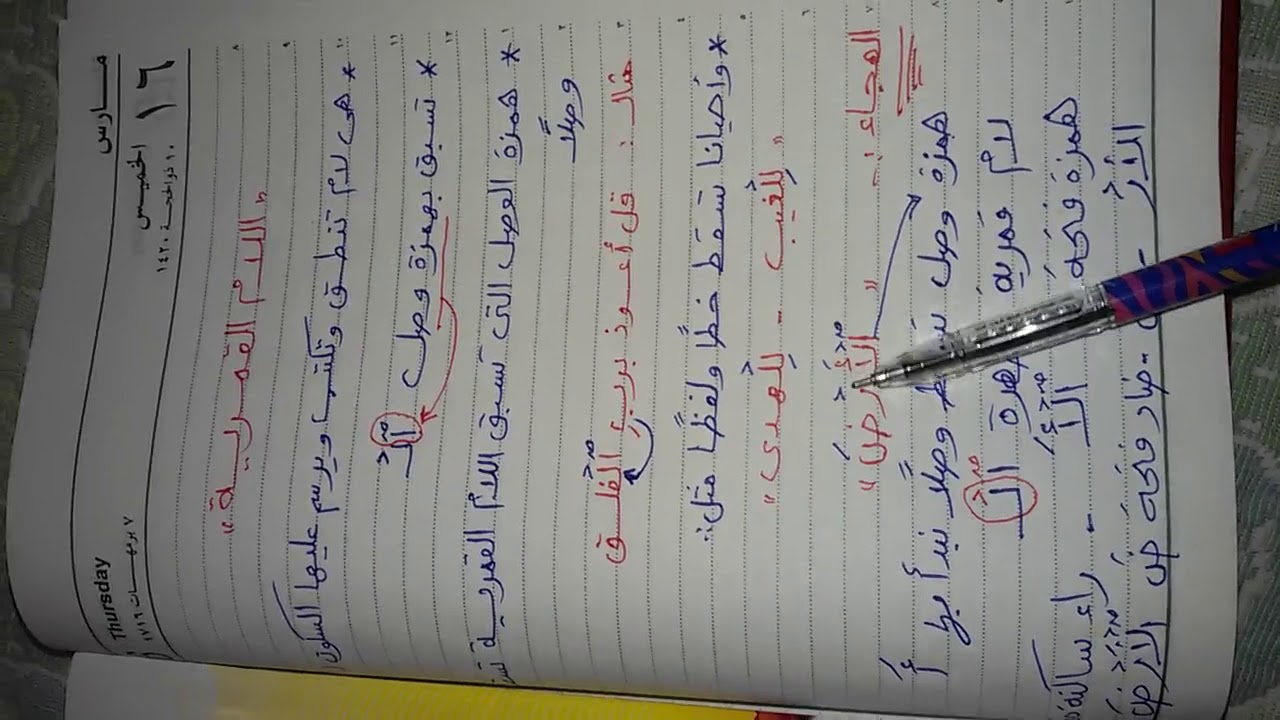 مارس
الخميس ١٦
١٠ ذو الحجة ١٤٢٠
Thursday
"اللام القمرية"
* هى لام تنطق وتكتب ويرسم عليها السكون
* تسبق بهمزة وصل
ٱلْـ
* همزة الوصل التى تسبق اللام القمرية
وصلاً
مثال: قل أعوذ برب الفلق
* وأحيانا تسقط خطًّا ولفظًا مثل:
"لِلْغيب - لِلْهدى"
الهجاء:
"الْأَرْضَ"
همزة وصل وصلًا نبدأ بها أَ
لام قمرية الْـ
همزة فتحة أَ الْأَ
راء ساكنة
الْأَرْ - ضاد فتحة ضَ الْأَرْضَ